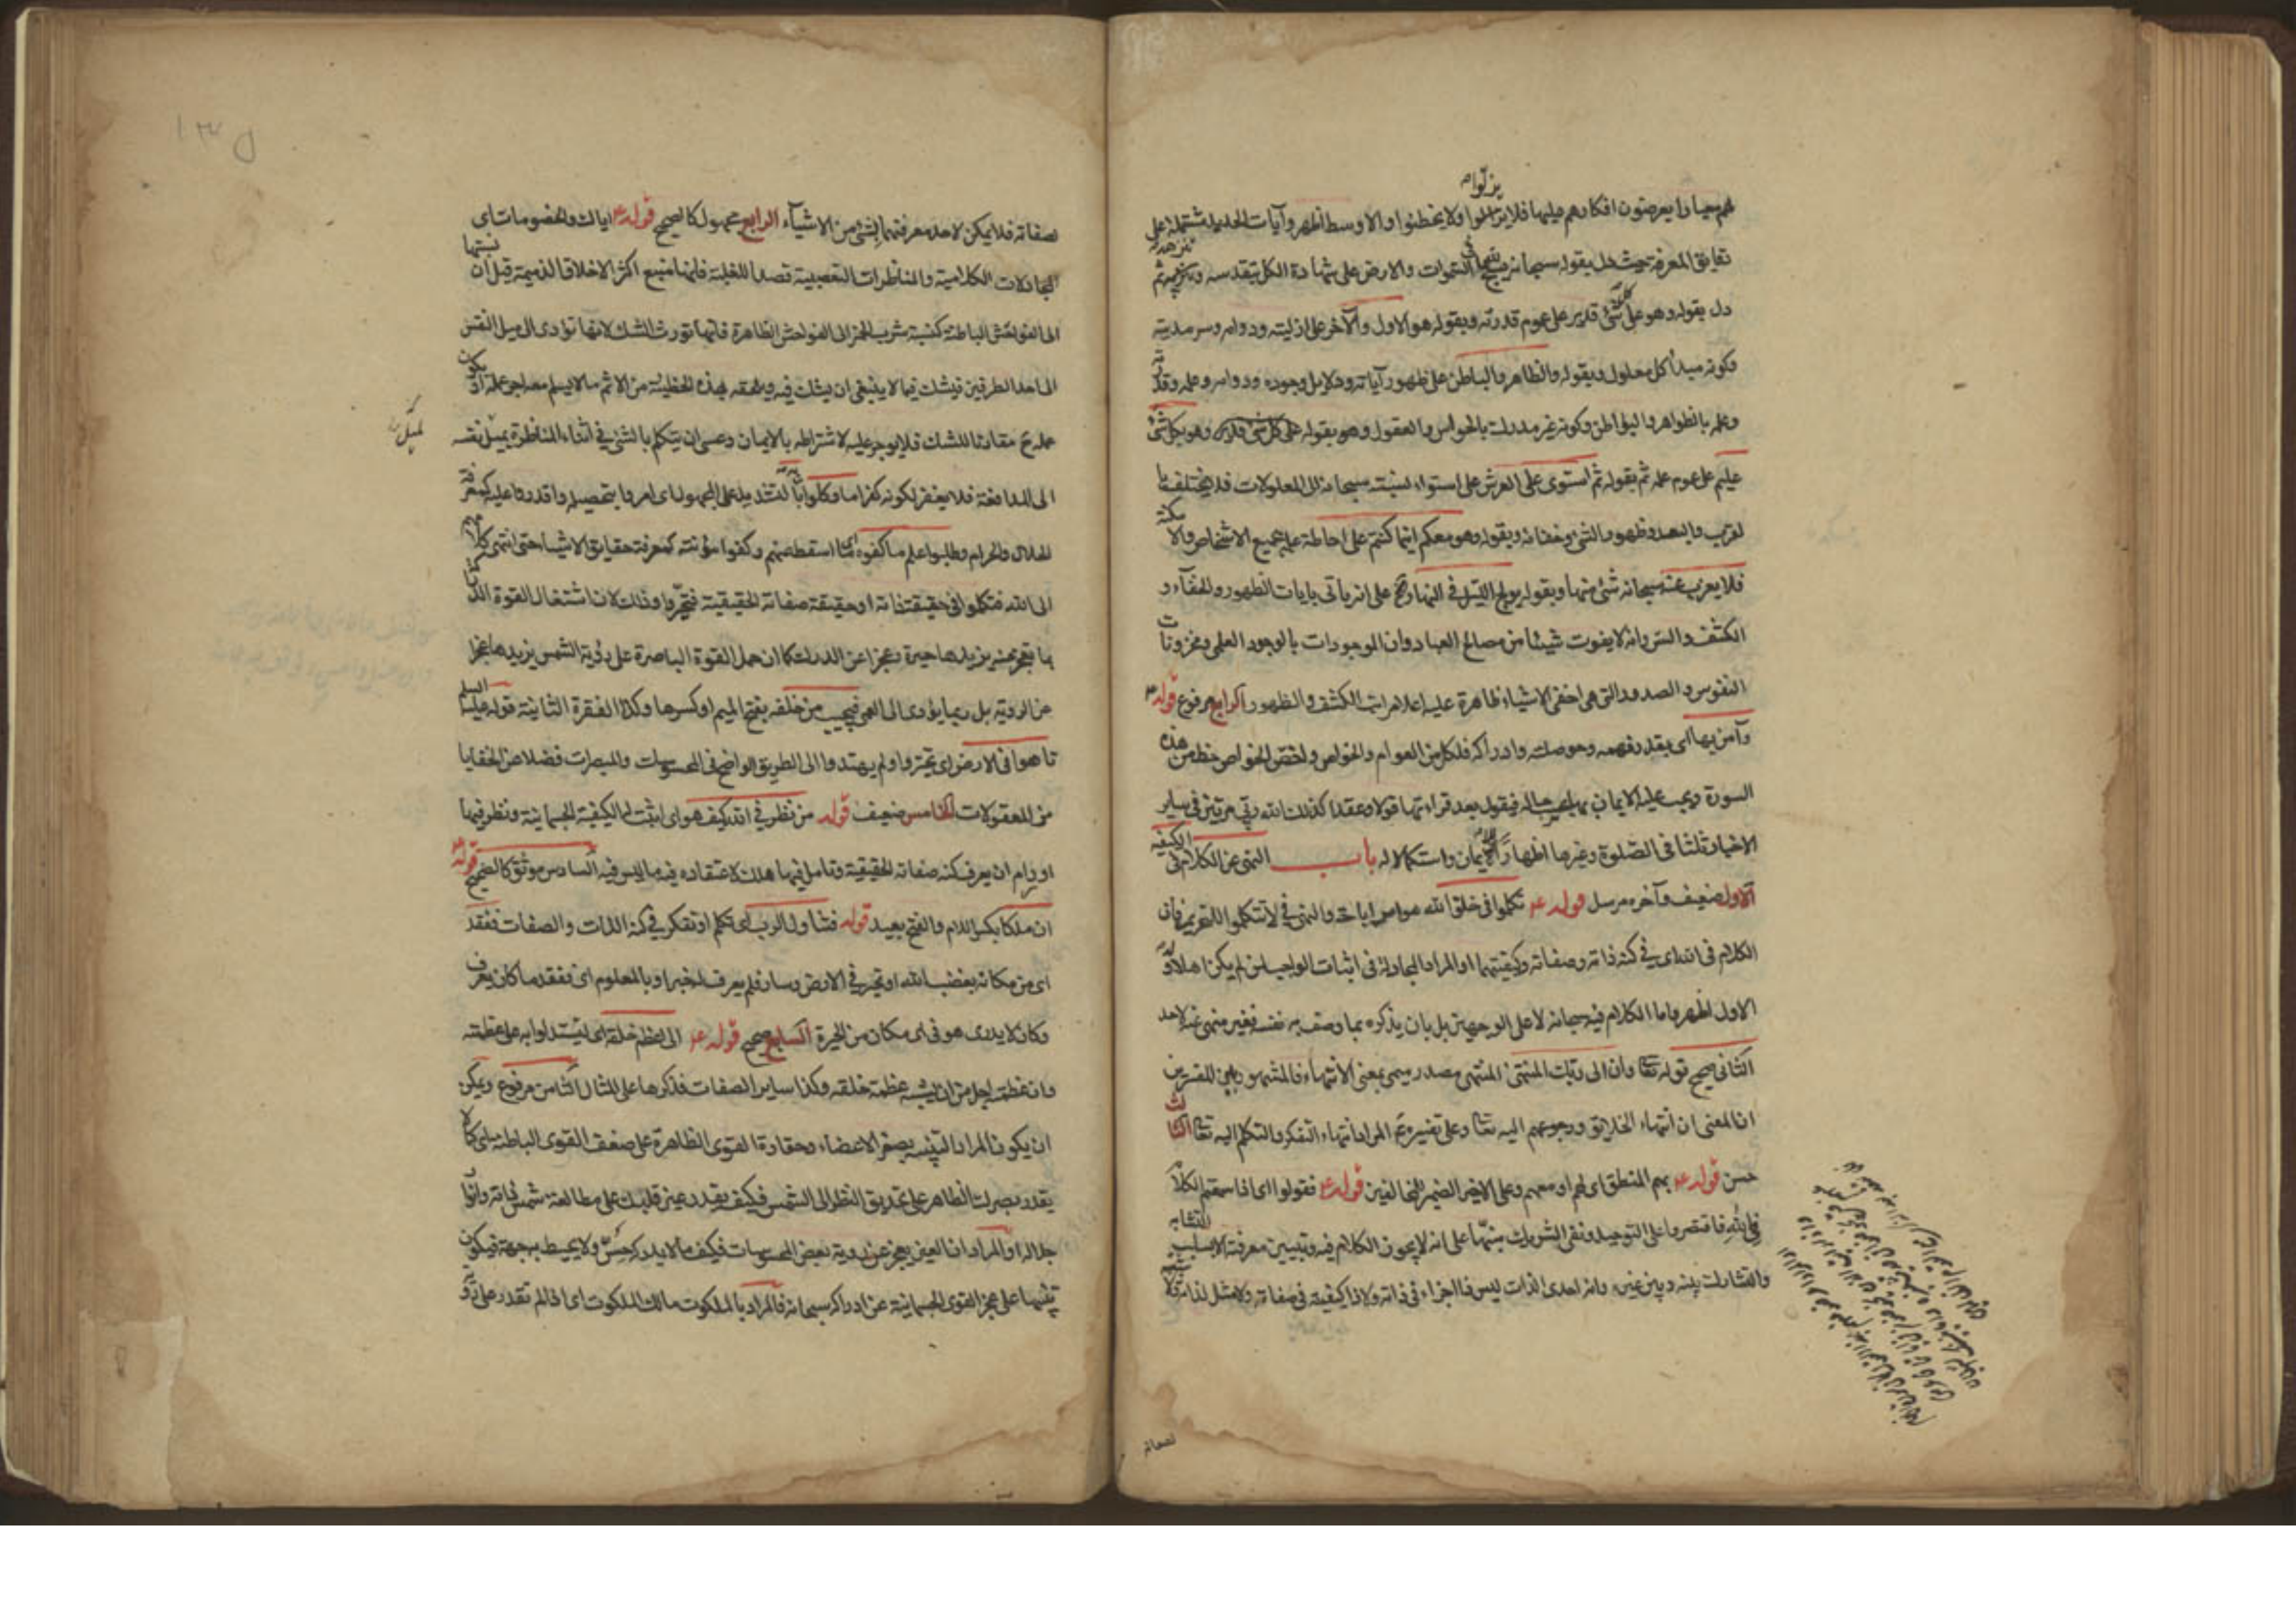 لهم معيارا يعرضون افكارهم عليها فلا يزلوا ولا يخطئوا والاوسط اظهر وآيات الحديد مشتملة على
دقايق المعرفة حيث دل بقوله سبحانه يسبح لله ما فى السموات والارض على شهادة الكل بتقدسه وتنزهه ثم
دل بقوله وهو على كل شئ قدير على عموم قدرته وبقوله هو الاول والآخر على ازليته ودوامه وسرمديته
وكونه مبدأ كل معلول وبقوله والظاهر والباطن على ظهور آياته ودلايل وجوده ودوامه وعلمه وقدرته
وعلمه بالظواهر والبواطن وكونه غير مدرك بالحواس والعقول وهو بقوله وهو بكل شئ
عليم على عموم علمه ثم بقوله ثم استوى على العرش على استواء نسبته سبحانه الى المعلولات فلا يختلف با
لقرب والبعد وظهور الشئ وخفائه وبقوله وهو معكم اينما كنتم على احاطة علمه بجميع الاشخاص والامكنة
فلا يعزب عنه سبحانه شئ منها وبقوله يولج الليل فى النهار الخ على انه يأتى بايات الظهور والخفاء و
الكشف والستر وانه لا يفوت شيئا من مصالح العباد وان الموجودات بالوجود العلمى ومخزونات
النفوس والصدور التى هى اخفى الاشياء ظاهرة عليه اعلا مراتب الكشف والظهور الرابع مرفوع قوله ع
وآمن بها اى بقدر فهمه وحوصلته وادراكه فلكل من العوام والخواص ولخص الخواص حظ من هذه
السورة ويجب عليه الايمان بها بحسب حاله فيقول بعد قراءتها قولا وعقدا كذلك الله ربى مرتين وفى ساير
الاخبار ثلثا فى الصلوة وغيرها اظهارا للايمان واستكمالا له باب النهى عن الكلام فى الكيفية
الاول ضعيف وآخره مرسل قوله ع تكلموا فى خلق الله هو امر اباحة والنهى فى لا تتكلموا للتحريم فان
الكلام فى الله اى فى كنه ذاته وصفاته وكيفيتهما او المراد المجادلة فى اثبات الواجب لمن لم يكن اهلا له و
الاول اظهر واما الكلام فيه سبحانه لا على الوجهين بل بان يذكره بما وصف به نفسه فغير منهى عنه لاحد
الثانى صحيح قوله تعالى وان الى ربك المنتهى المنتهى مصدر ميمى بمعنى الانتهاء فالمشهور بين المفسرين
ان المعنى ان انتهاء الخلايق ورجوعهم اليه تعالى وعلى تفسيره ع المراد انتهاء التفكر والتكلم اليه تعالى الثالث
حسن قوله ع بهم المنطق اى لهم او معهم وعلى الاخير الضمير للمخالفين قوله ع فقولوا اى اذا سمعتم الكلام
فى الله فاقتصروا على التوحيد ونفى الشريك منبها على انه لا يجوز الكلام فيه وتبيين معرفته الا بسلب التشابه
والتشارك بينه وبين غيره وانه احدى الذات ليس فا اجزاء فى ذاته ولا ذا كيفية فى صفاته ولا مثل لذاته ولا
لصفاته
١٣٥
لصفاته فلا يمكن لاحد معرفتهما بشئ من الاشياء الرابع مجهول كالصحيح قوله ع اياك والخصومات اى
المجادلات الكلامية والمناظرات التعصبية قصدا للغلبة فانها منبع اكثر الاخلاق الذميمة قيل ان نسبتها
الى الفواحش الباطنة كنسبة شرب الخمر الى الفواحش الظاهرة فانها تورث الشك لانها تؤدى الى ميل النفس
الى احد الطرفين فيشك فيما لا ينبغى ان يشك فيه ويلحقه بهذه الخطيئة من الاثم ما لا يسلم معه اجر عمله او يكون
عمله ع مقارنا للشك فلا يوجر عليه لاشتراطه بالايمان وعسى ان يتكلم بالشئ فى اثناء المناظرة يميل نفسه
الى المدافعة فلا يغفر لكونه كفرا ما وكلوا به بالتشديد على المجهول اى امروا بتحصيله واقدروا عليه كمعرفة
الحلال والحرام وطلبوا علم ما كفوه اى ما اسقط عنهم وكفوا مؤنته كمعرفة حقايق الاشياء حتى انتهى كلامهم
الى الله فتكلموا فى حقيقة ذاته او حقيقة صفاته الحقيقية فتحيروا وذلك لان اشتغال القوة الدراكة
بما تعجز عنه يزيدها حيرة وعجزا عن الدرك كما ان حمل القوة الباصرة على رؤية الشمس يزيدها عجزا
عن الرؤية بل ربما يؤدى الى العمى فيجيب من خلفه بفتح الميم او كسرها وكذا الفقرة الثانية قوله عليه السلم
تاهوا فى الارض اى تحيروا ولم يهتدوا الى الطريق الواضح فى المحسوسات والمبصرات فضلا عن الخفايا
من المعقولات الخامس ضعيف قوله من نظر فى الله كيف هو اى اثبت له الكيفية الجسمانية ونظر فيها
او رام ان يعرف كنه صفاته الحقيقية وتأمل فيها هلك لاعتقاده فيه ما ليس فيه السادس موثق كالصحيح قوله ع
ان ملكا بكسر اللام والفتح بعيد قوله فتناول الرب اى تكلم او تفكر فى كنه الذات والصفات ففقد
اى من مكانه بغضب الله او تحير فى الارض وسار فلم يعرف له خبر او بالمعلوم اى ففقد ما كان يعرف
وكان لا يدرى هو فى اى مكان من الحيرة السابع صحيح قوله ع الى عظم خلقه اى ليستدلوا به على عظمته
وان عظمته اجل من ان يشبه عظمة خلقه وكذا ساير الصفات فذكرها على المثال الثامن مرفوع ويمكن
ان يكون المراد التنبيه بصغر الاعضاء وحقارة القوى الظاهرة على ضعف القوى الباطنة اى كما لا
يقدر بصرك الظاهر على تحديق النظر الى الشمس فكيف يقدر عين قلبك على مطالعة شمس ذاته وانوار
جلاله او المراد ان العين يعجز عن رؤية بعض المحسوسات فكيف ما لا يدركه حس ولا يحيط به جهة فيكون
تنبيها على عجز القوى الجسمانية عن ادراكه سبحانه فالمراد بالملكوت مالك الملكوت اى اذا لم تقدر على رؤية